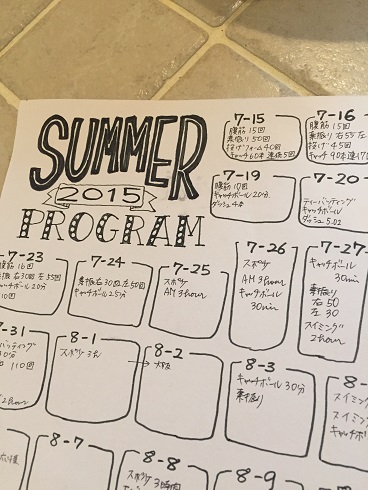 SUMMER
2015
PROGRAM
7-15
腹筋 15回
素振り 50回
投げフォーム 40回
キャッチ 60本 連係5回
7-16
腹筋 15回
素振り 右55 左
投げ 45回
キャッチ 90本
7-19
腹筋 10回
キャッチボール 20分
ダッシュ 4本
7-20
ティーバッティング
キャッチボール
ダッシュ
7-23
腹筋 16回
素振 右30回 左35回
キャッチボール 20分
10回
7-24
素振右30回 左50回
キャッチボール 25分
7-25
スポッツ
AM 3hour
7-26
スポッツ
AM 3hour
キャッチボール
30min
7-27
キャッチボール
30min
素振り
右 50
左 30
スイミング
2hour
7-31
バッティング
30分
110回
2hour
8-1
スポッツ 3h
8-2
→大阪
8-3
キャッチボール 30分
素振り
8-4
キャッチボール
スイミ
スイミ
キャッチ
8-7
8-8
スポッツ 3時間
8-9